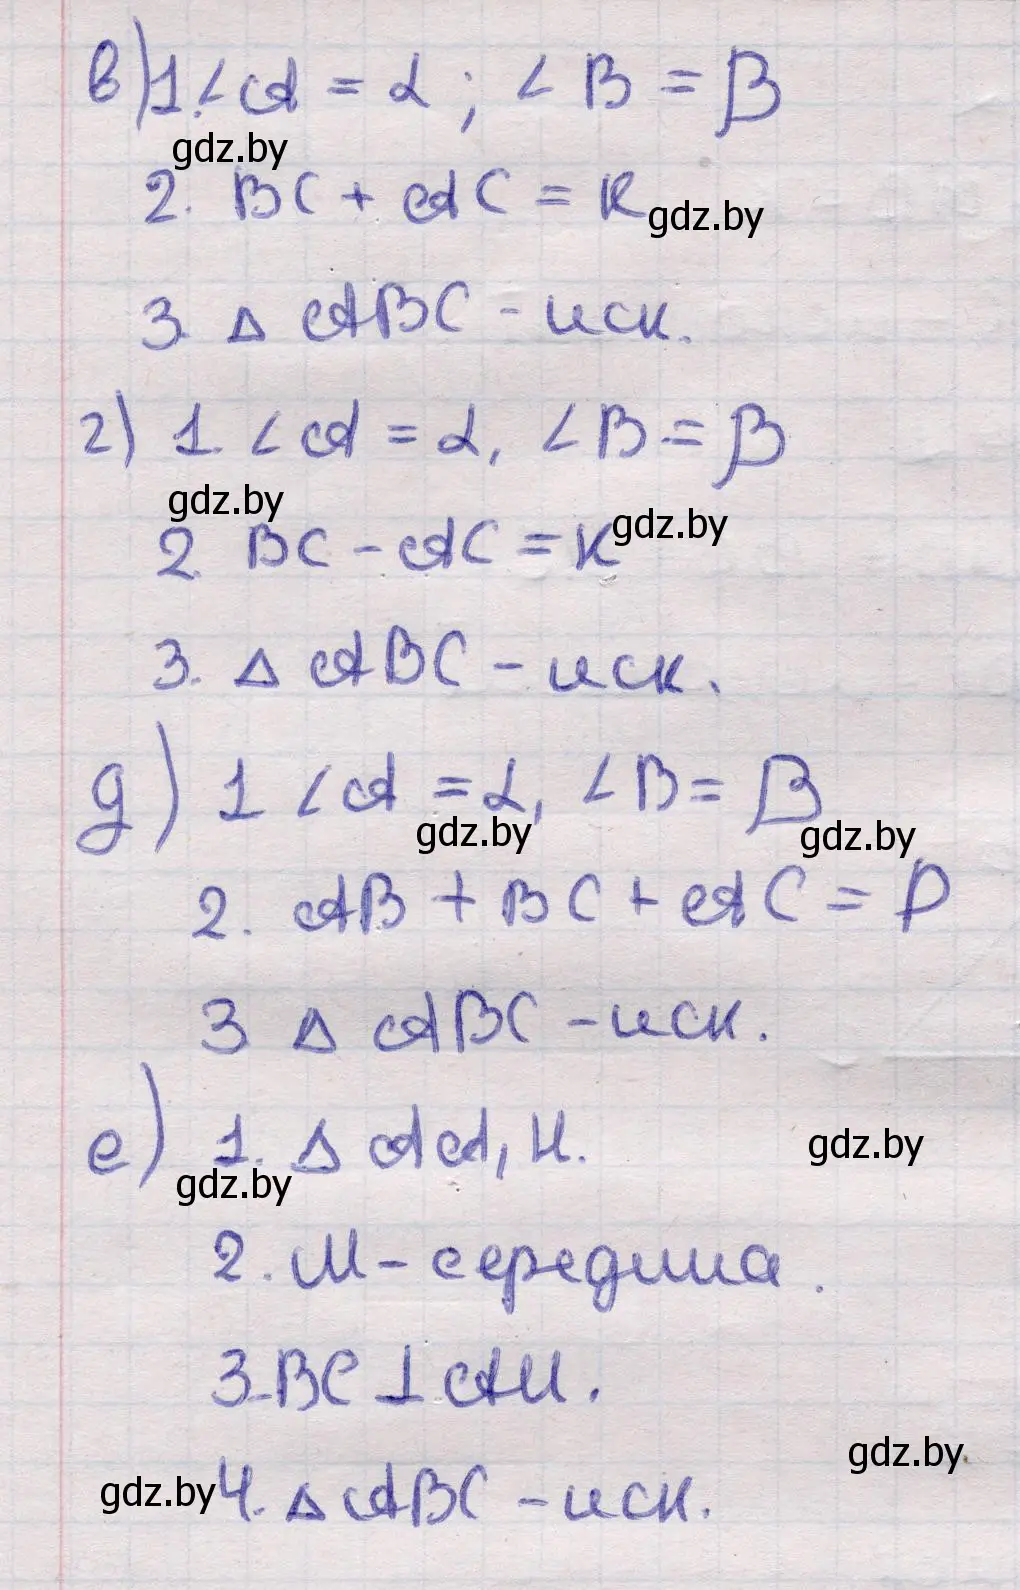 в) 1. ∠A = α; ∠B = β
gdz.by
2. BC + AC = K
gdz.by
3. Δ ABC - иск.
г) 1. ∠A = α, ∠B = β
gdz.by
gdz.by
2 BC - AC = K
3. Δ ABC - иск.
д) 1 ∠A = α, ∠B = β
gdz.by
gdz.by
2. AB + BC + AC = P
3 Δ ABC - иск.
е) 1. Δ AA₁H.
gdz.by
gdz.by
2. M - середина.
3. BC ⊥ AH.
gdz.by
gdz.by
4. Δ ABC - иск.